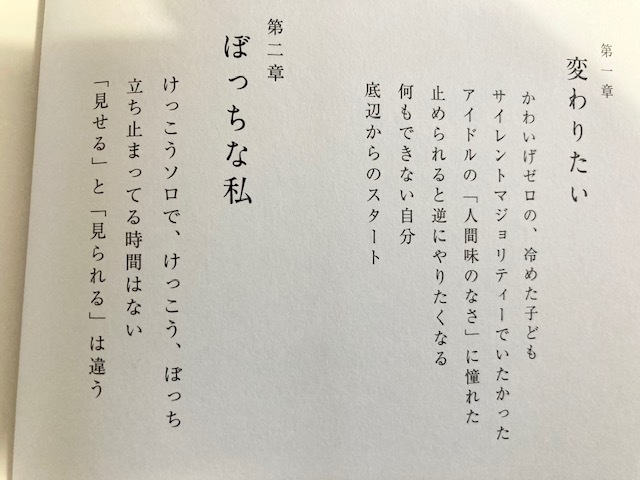 第一章
変わりたい
かわいげゼロの、冷めた子ども
サイレントマジョリティーでいたかった
アイドルの「人間味のなさ」に憧れた
止められると逆にやりたくなる
何もできない自分
底辺からのスタート
第二章
ぼっちな私
けっこうソロで、けっこう、ぼっち
立ち止まってる時間はない
「見せる」と「見られる」は違う